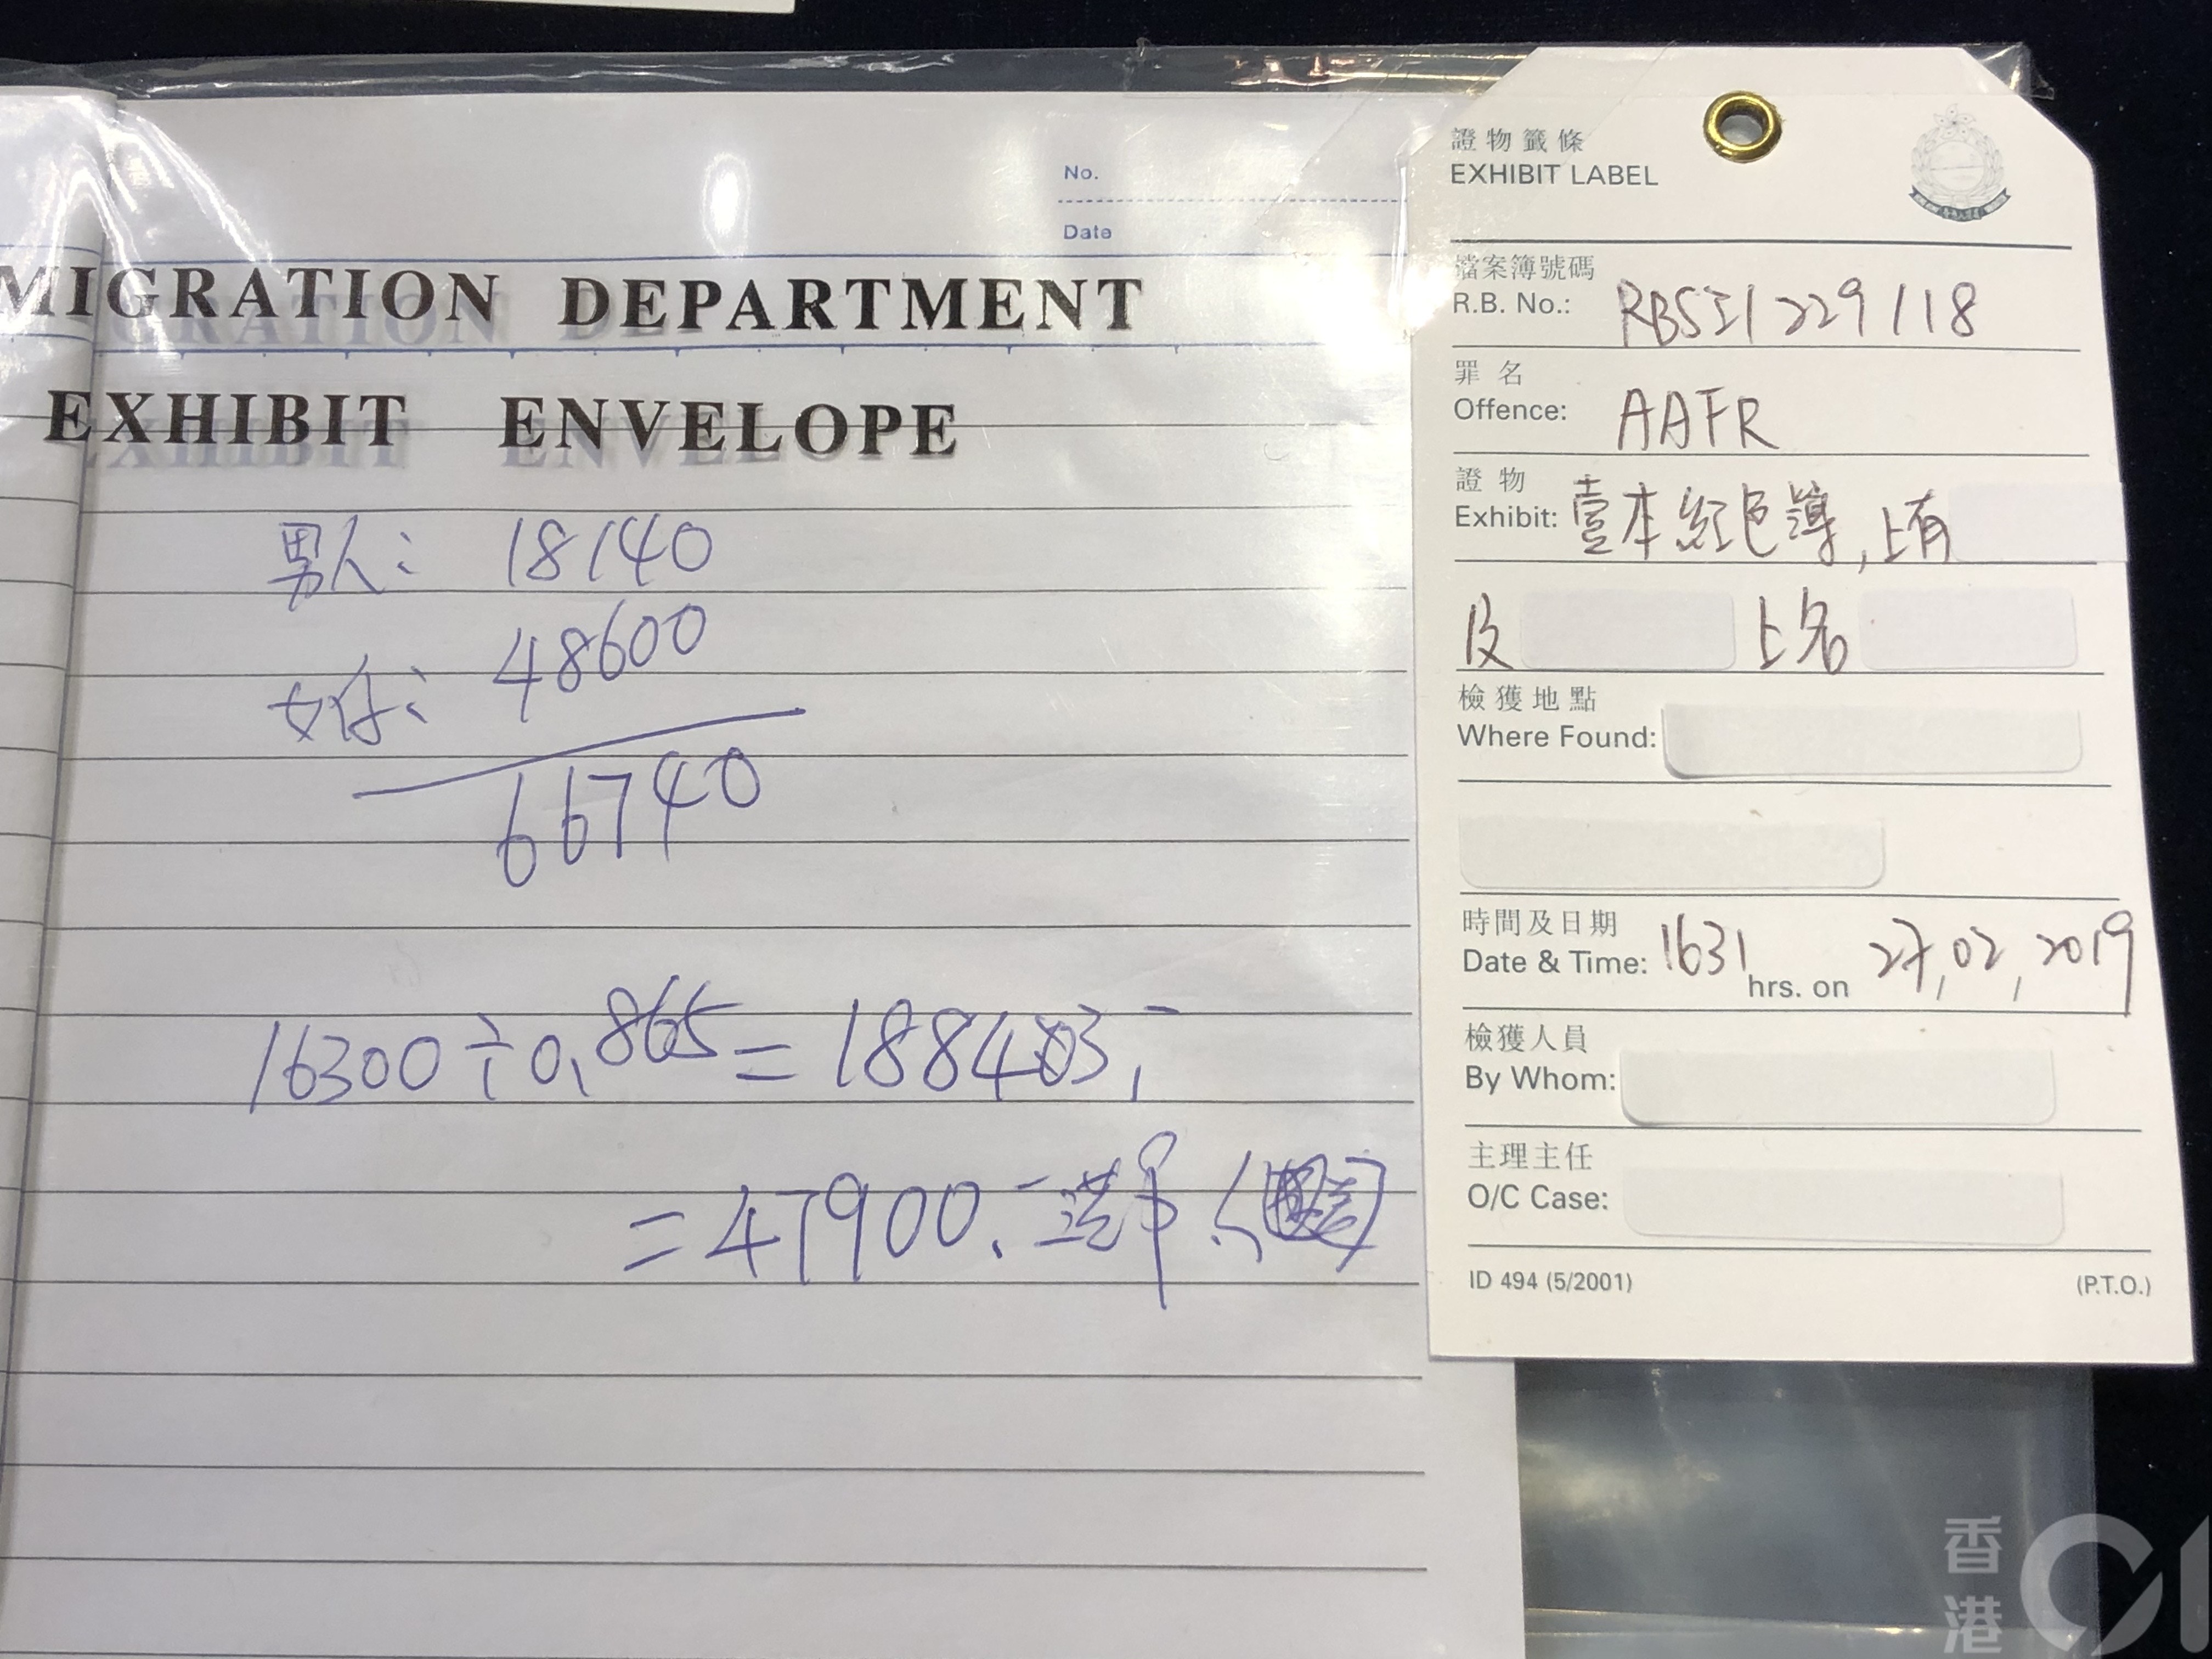 No.
Date
MIGRATION DEPARTMENT
EXHIBIT ENVELOPE
男人: 18140
女仔: 48600
66740
16300÷0.865=188403.-
=47900.-港币
證物籤條
EXHIBIT LABEL
檔案簿號碼
R.B. No.: RBSI1229/18
罪名
Offence: AAFR
證物
Exhibit: 壹本紅色簿,上有
及 上名
檢獲地點
Where Found:
時間及日期
Date & Time: 1631 hrs. on 27,02,2019
檢獲人員
By Whom:
主理主任
O/C Case:
ID 494 (5/2001) (P.T.O.)
香港01